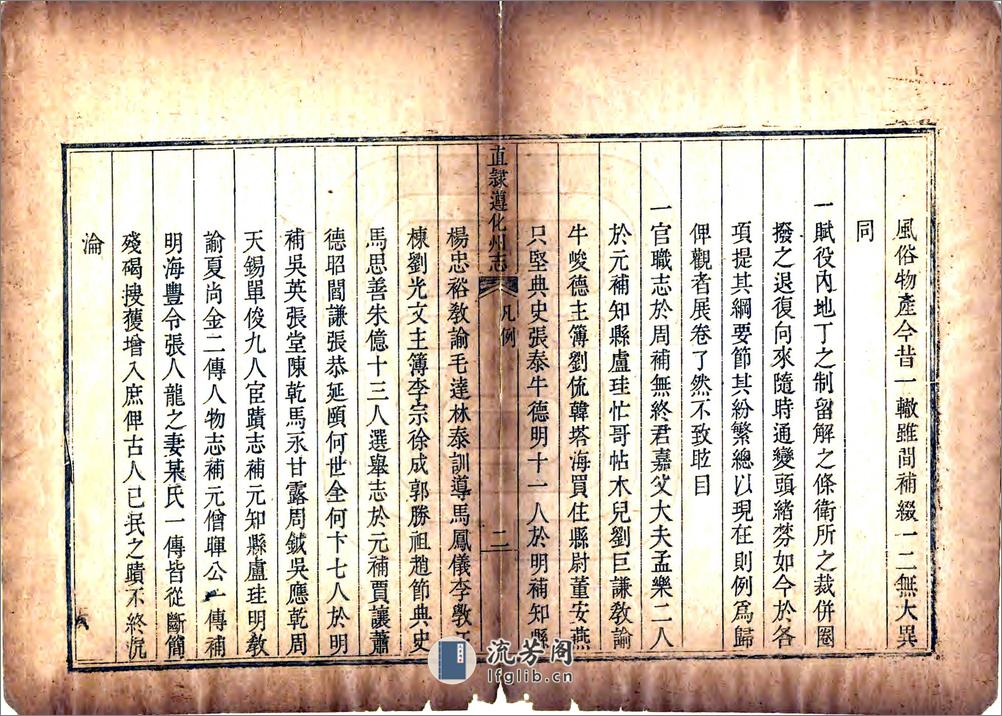 風俗物產今昔一轍雖間補綴一二無大異
同
一賦役內地丁之制留解之條衛所之裁併圈
撥之退復向來隨時通變頭緒棼如今於各
項提其綱要節其紛繁總以現在則例爲歸
俾觀者展卷了然不致眩目
一官職志於周補無終君嘉父大夫孟樂二人
於元補知縣盧珪忙哥帖木兒劉巨謙敎諭
牛峻德主簿劉侃韓塔海買住縣尉董安燕
只堅典史張泰牛德明十一人於明補知縣
直隸遵化州志
凡例
二
楊忠裕敎諭毛達林泰訓導馬鳳儀李斅
棟劉光文主簿李宗徐成郭勝祖趙節典史
馬思善朱億十三人選舉志於元補賈讓蕭
德昭閻謙張恭延頤何世全何卞七人於明
補吳英張堂陳乾馬永甘露周鉞吳應乾周
天錫單俊九人宦蹟志補元知縣盧珪明敎
諭夏尚金二傳人物志補元僧暉公一傳補
明海豐令張人龍之妻某氏一傳皆從斷簡
殘碣搜獲增入庶俾古人已民之蹟不終沉
淪
流芳阁
lfglib.cn